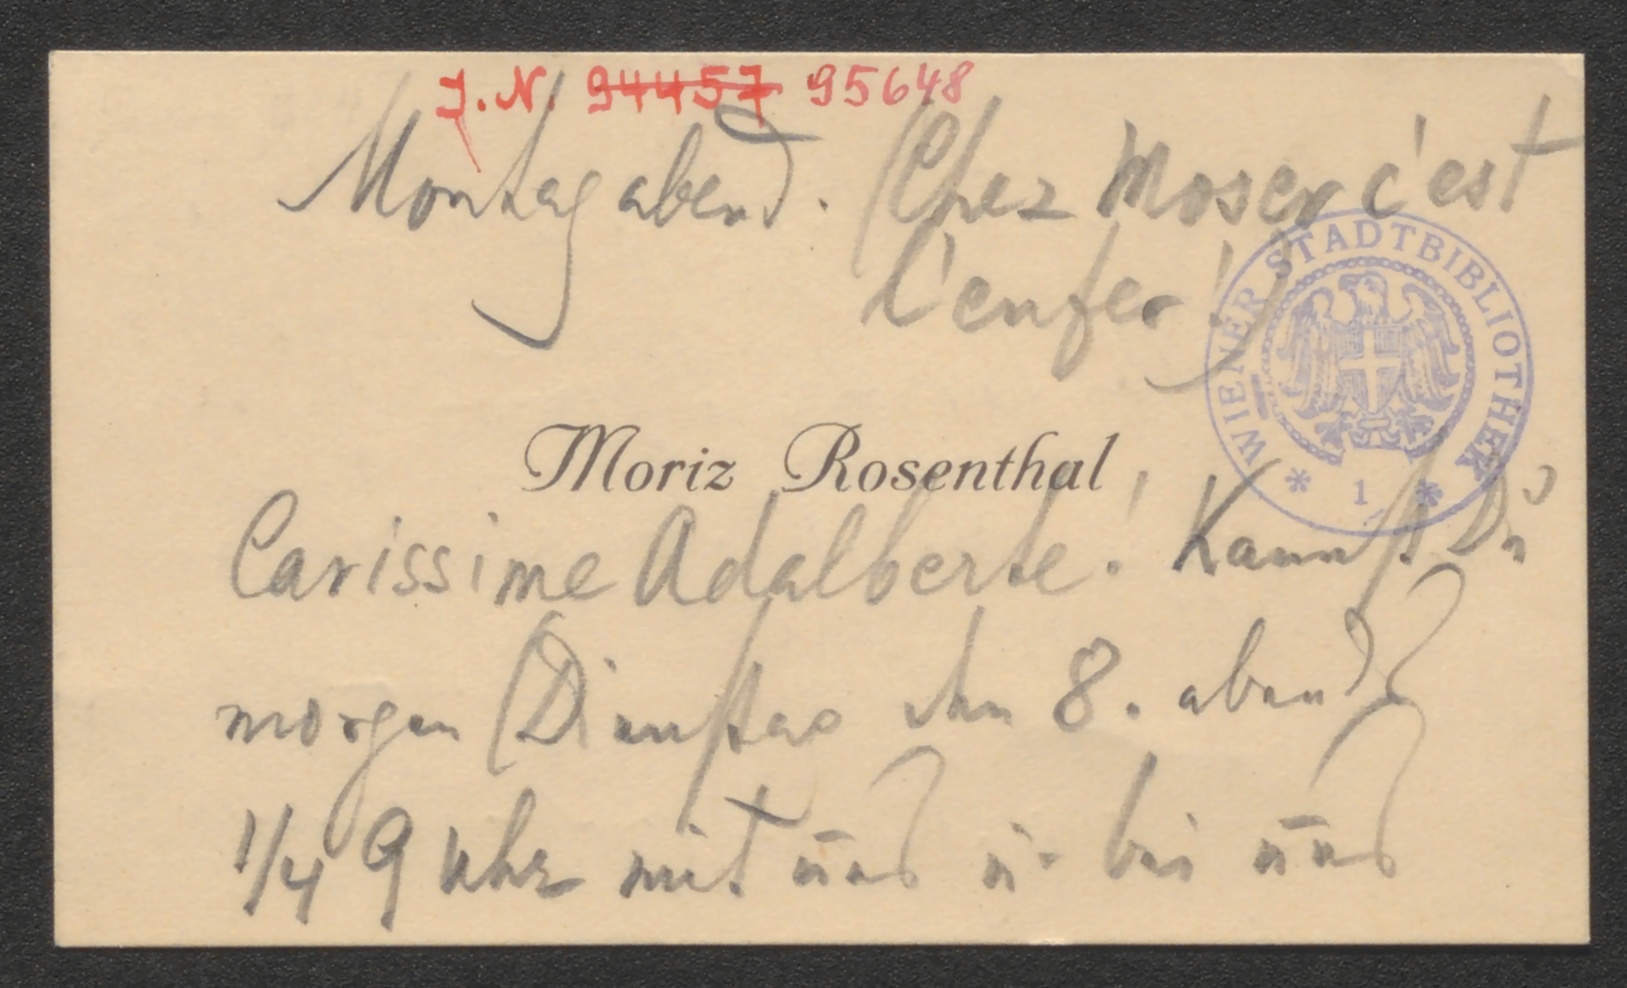 J. N. 94457 95648
Montag abend. (Chez Moser c'est
l'enfer!)
WIENER STADTBIBLIOTHEK
* 1 *
Moriz Rosenthal
Carissime Adalberte! Kannst Du
morgen (Dienstag den 8. abends
1/4 9 Uhr mit uns u. bei uns